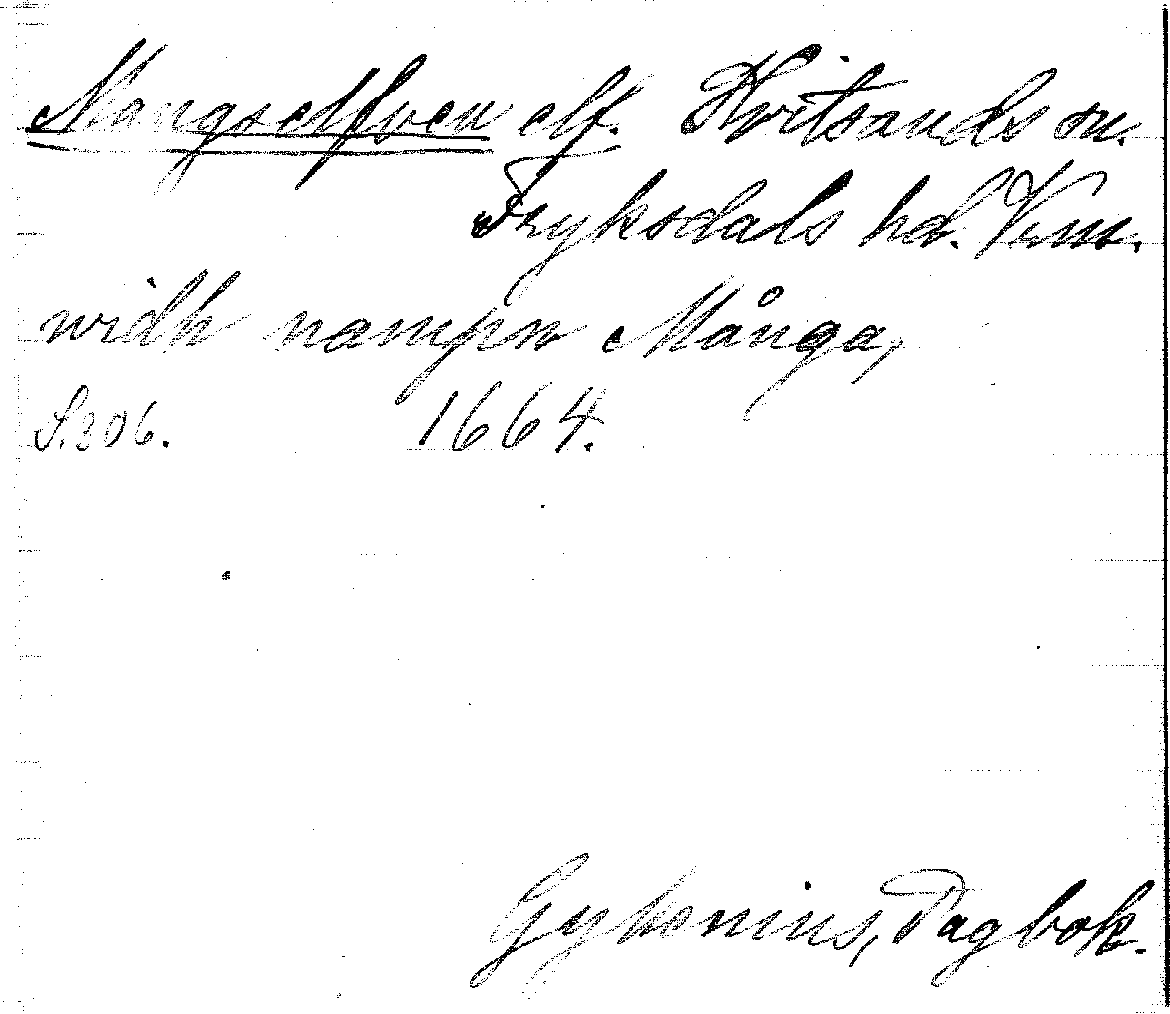 Mangselfven elf. Hvitsands sn.
Fryksdals hd. Verm.
widh nampn Många,
S. 306. 1664.
Gyllenius, Dagbok.